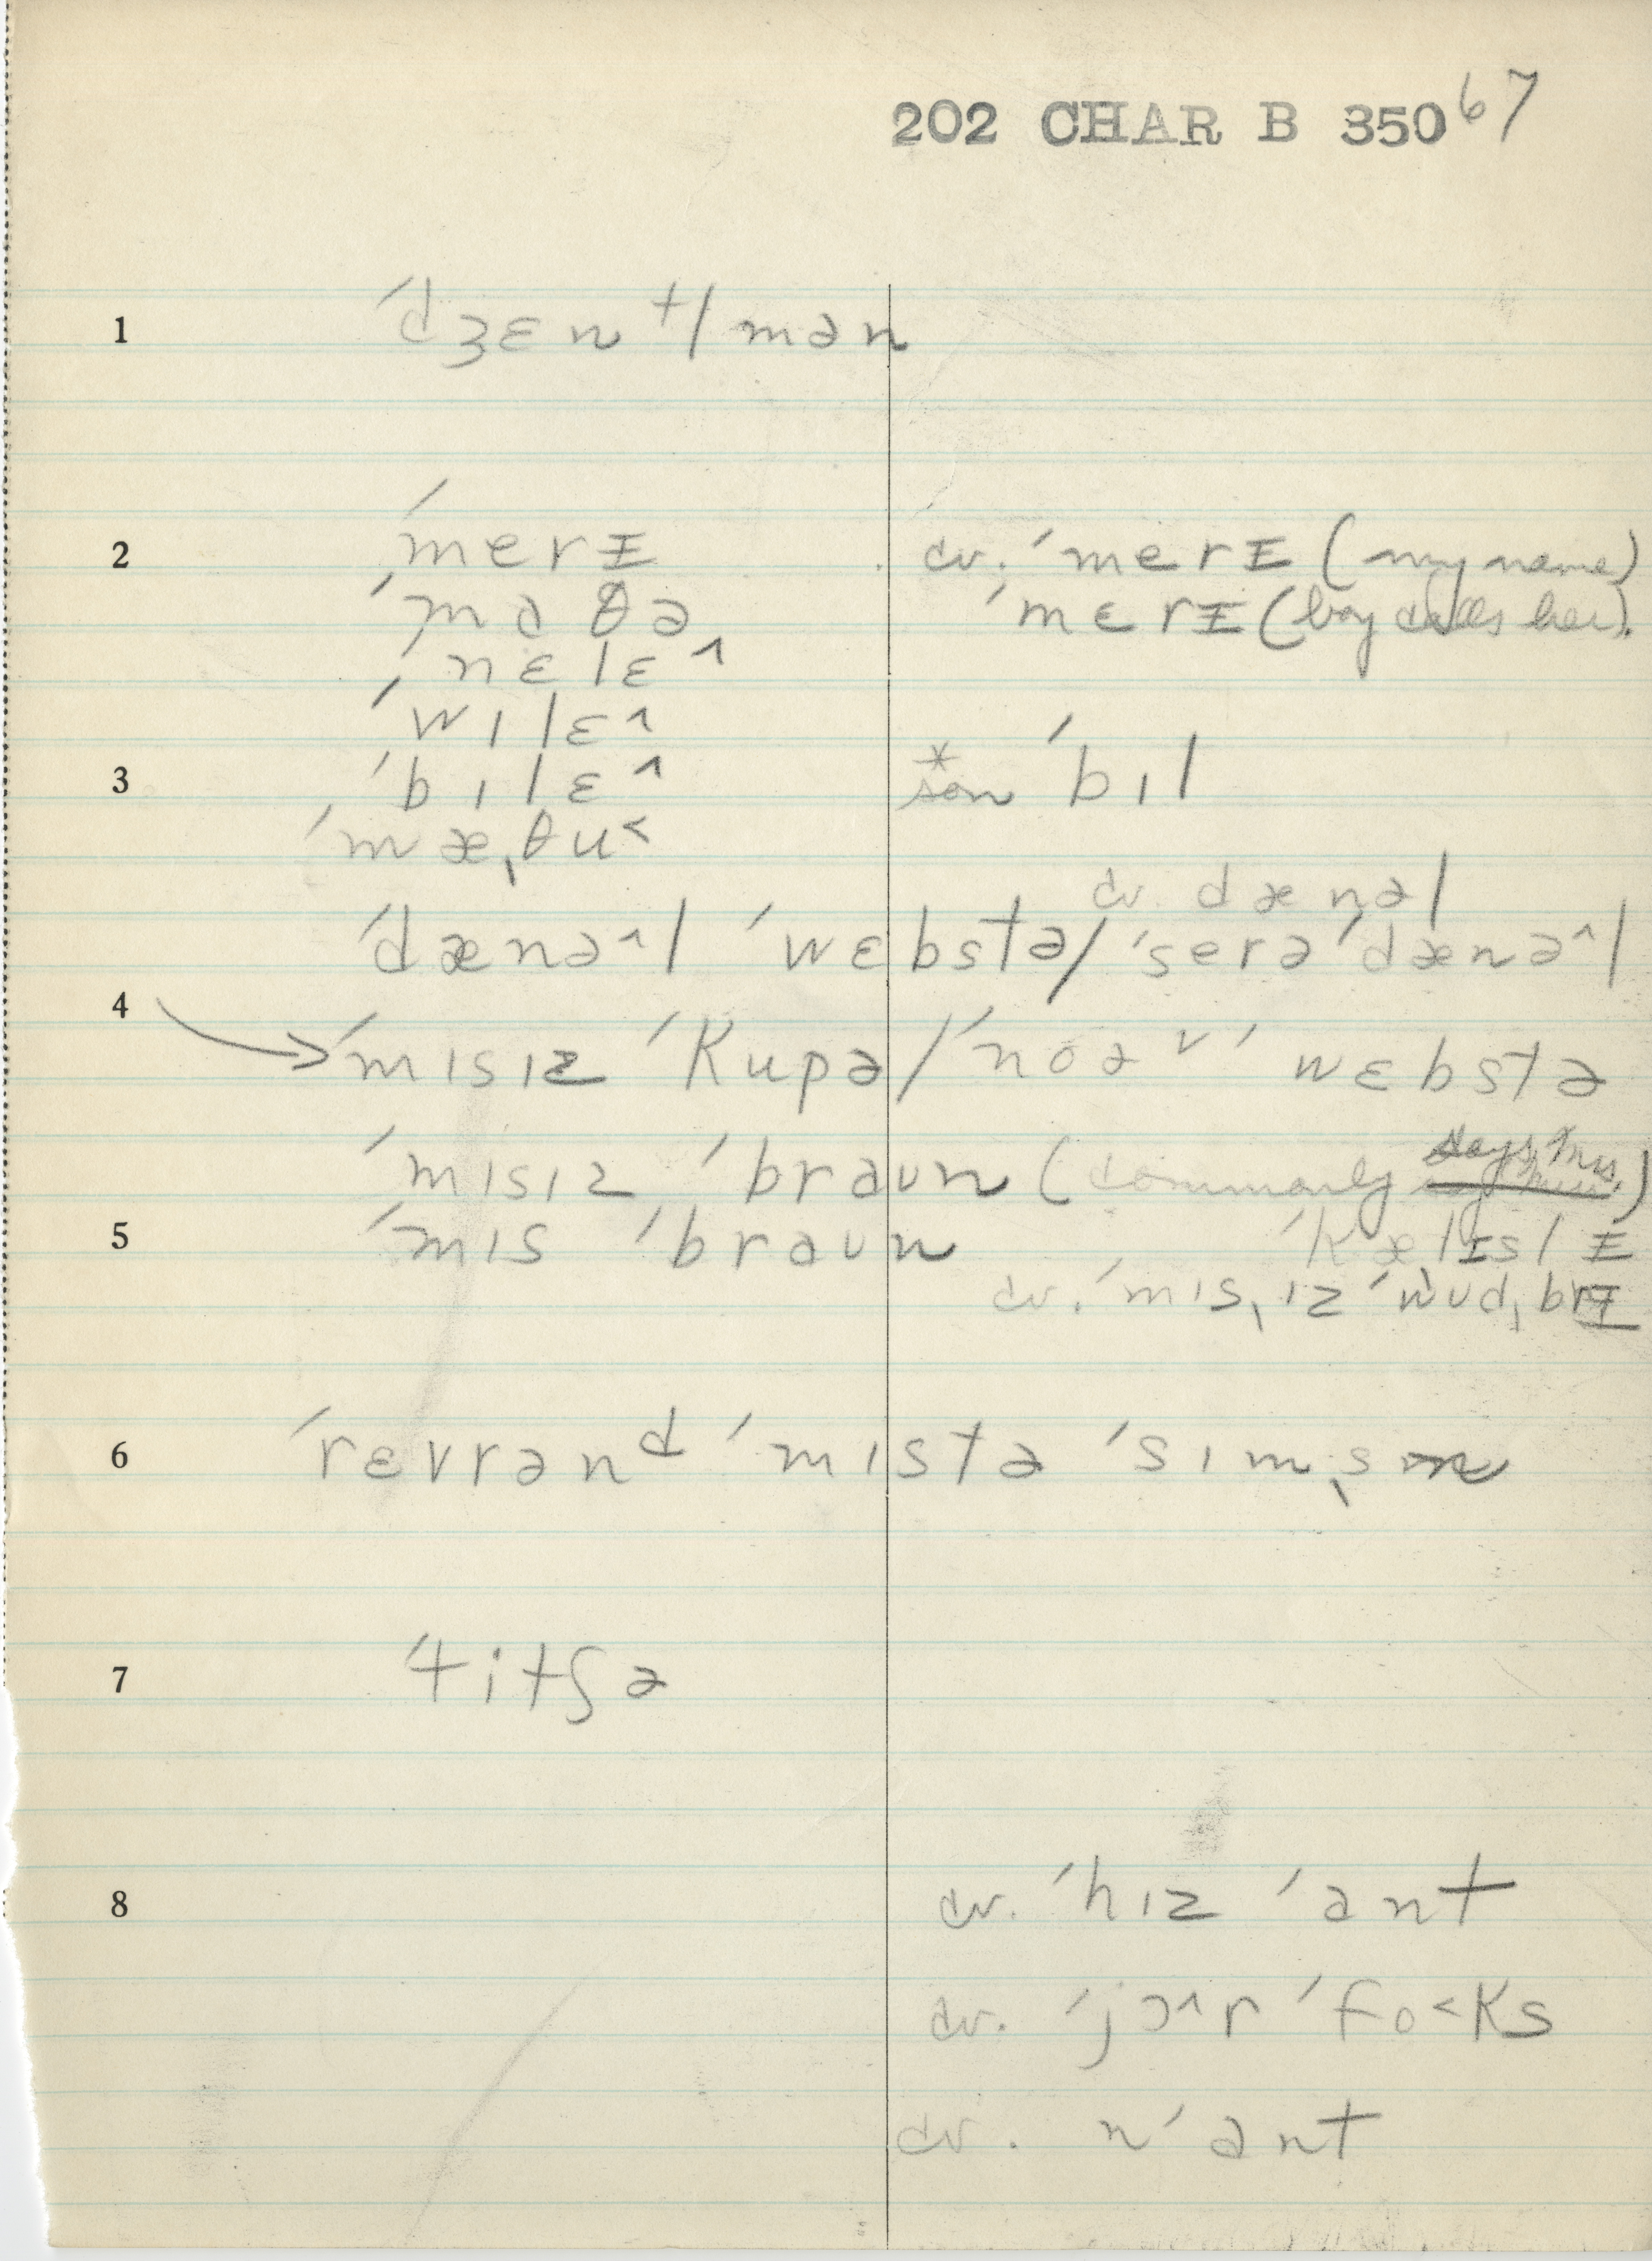 202 CHAR B 350 67
1 ˈdʒɛn ᵗl mən
2 ˈmerɪ cv. ˈmerɪ (my name)
ˈmaθə ˈmɛrɪ (boy calls her).
ˈnɛlɛ^
ˈwɪlɛ^
3 ˈbɪlɛ^ *son ˈbɪl
ˈmæˌθu<
cv. dænəl
ˈdænə^l ˈwɛbstə/ˈserə ˈdænə^l
4 → ˈmɪsɪz ˈkupə/ˈnoə˅ ˈwɛbstə
ˈmɪsɪz ˈbraun (commonly says Mrs.)
5 ˈmɪs ˈbraun ˈkælɪslɪ
cv. ˈmɪsˌɪz ˈwudˌbrɪ
6 ˈrɛvrənᵈ ˈmɪstə ˈsɪmˌsn
7 ˈtitʃə
8 cv. ˈhɪz ˈant
cv. ˈjɔ^r ˈfo<ks
cv. nˈant